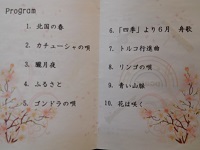 Program
1. 北国の春
2. カチューシャの唄
3. 朧月夜
4. ふるさと
5. ゴンドラの唄
6. 「四季」より6月 舟歌
7. トルコ行進曲
8. リンゴの唄
9. 青い山脈
10. 花は咲く